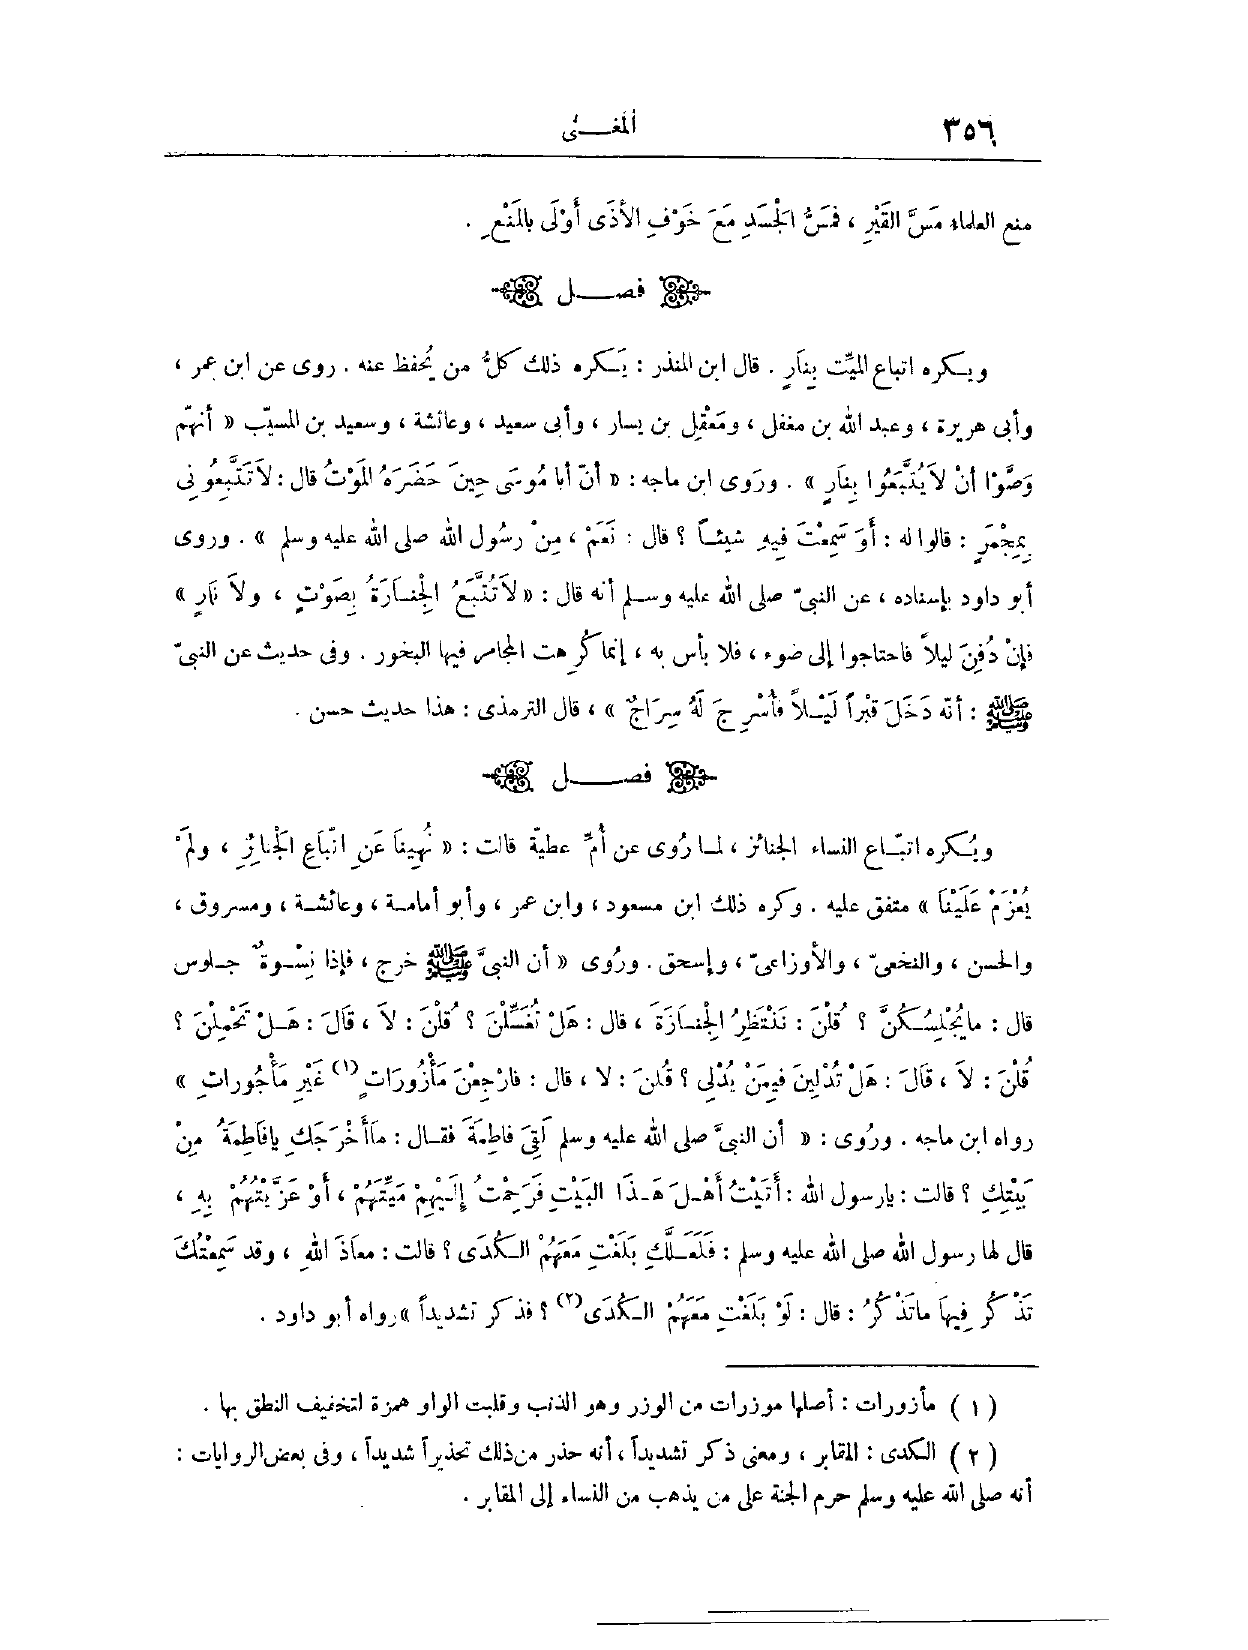 ٣٥٦ المغـــنى
منع العلماء مَسَّ القَبْرِ ، فَمَسُّ الجَسَدِ مَعَ خَوْفِ الأذَى أوْلَى بالمَنْعِ .
فصـــل
ويـكره اتباع الميِّت بِنَارٍ . قال ابن المنذر : يَـكره ذلك كلُّ من يُحفظ عنه . روى عن ابن عمر ،
وأبى هريرة ، وعبد الله بن مغفل ، ومَعْقِل بن يسار ، وأبى سعيد ، وعائشة ، وسعيد بن المسيّب « أنهّم
وَصَّوْا أنْ لاَ يُتَّبَعُوا بِنَارٍ » . وروَى ابن ماجه : « أنّ أبا مُوسَى حِينَ حَضَرَهُ المَوْتُ قال : لاَ تَتَّبِعُونِى
بِمِجْمَرٍ : قالوا له : أوَ سَمِعْتَ فِيهِ شيئـاً ؟ قال : نَعَمْ ، مِنْ رسُول الله صلى الله عليه وسلم » . وروى
أبو داود بإسناده ، عن النبىّ صلى الله عليه وسـلم أنه قال : «لاَ تُتَّبَعُ الجِنـازَةُ بِصَوْتٍ ، ولاَ نَارٍ »
فإنْ دُفِنَ ليلاً فاحتاجوا إلى ضوء ، فلا بأس به ، إنما كُرهت المجامر فيها البخور . وفى حديث عن النبىّ
ﷺ : أنّه دَخَلَ قبْراً لَيْـلاً فأُسْرِجَ لَهُ سِرَاجٌ » ، قال الترمذى : هذا حديث حسن .
فصـــل
ويُـكره اتبـّاع النساء الجنائز ، لمـا رُوى عن أمِّ عطيّة قالت : « نُهِينَا عَنِ اتّبَاعِ الجَنَائِزِ ، ولَمْ
يُعْزَمْ عَلَيْنَا » متفق عليه . وكره ذلك ابن مسعود ، وابن عمر ، وأبو أمامـة ، وعائشـة ، ومسروق ،
والحسن ، والنخعىّ ، والأوزاعىّ ، وإسحق . ورُوى « أن النبىَّ ﷺ خرج ، فإذا نِسْـوةٌ جـلوس
قال : ما يُجْلِسُـكُنَّ ؟ قُلْنَ : نَنْتَظِرُ الجِنـازَةَ ، قال : هَلْ تُغَسِّلْنَ ؟ قُلْنَ : لاَ ، قَالَ : هَـلْ تَحْمِلْنَ ؟
قُلْنَ : لاَ ، قَالَ : هَلْ تُدْلِينَ فِيمَنْ يُدْلِى ؟ قُلنَ : لا ، قال : فارْجِعْنَ مَأْزُورَاتٍ(١) غَيْرَ مَأْجُوراتٍ »
رواه ابن ماجه . ورُوى : « أن النبىَّ صلى الله عليه وسلم لَقِىَ فَاطِمَةَ فقـال : مَا أَخْرَجَكِ يَا فَاطِمَةُ مِنْ
بَيْتِكِ ؟ قالت : يا رسول الله : أَتَيْتُ أهْـلَ هَـذَا البَيْتِ فَرَحِمْتُ إلَـيْهِمْ مَيِّتَهُمْ ، أوْ عَزَّيْتُهُمْ بِهِ ،
قال لها رسول الله صلى الله عليه وسلم : فَلَعَـلَّكِ بَلَغْتِ مَعَهُمْ الـكُدَى ؟ قالت : معاَذَ اللهِ ، وقد سَمِعْتُكَ
تَذْكُر فِيهَا مَا تَذْكُرُ : قال : لَوْ بَلَغْتِ مَعَهُمْ الـكُدَى(٢) ؟ فذكر تشديداً » رواه أبو داود .
( ١ ) مأزورات : أصلها موزرات من الوزر وهو الذنب وقلبت الواو همزة لتخفيف النطق بها .
( ٢ ) الـكدى : المقابر ، ومعنى ذكر تشديداً ، أنه حذر من ذلك تحذيراً شديداً ، وفى بعض الروايات :
أنه صلى الله عليه وسلم حرم الجنة على من يذهب من النساء إلى المقابر .